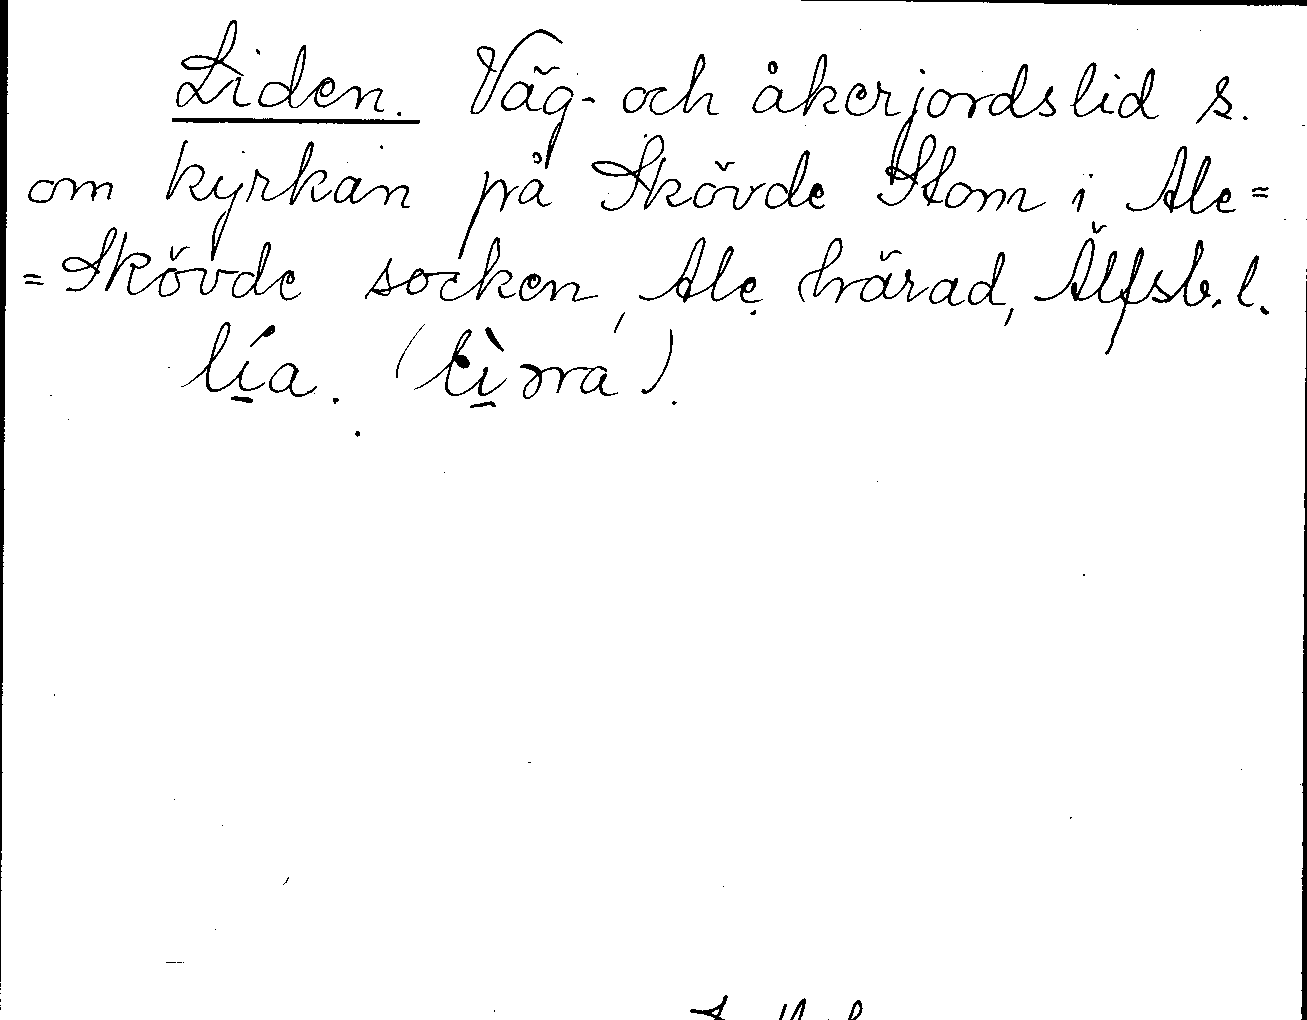 Liden. Väg- och åkerjordslid s.
om kyrkan på Skövde Stom i Ale=
=Skövde socken, Ale härad, Älfsb. l.
lía.